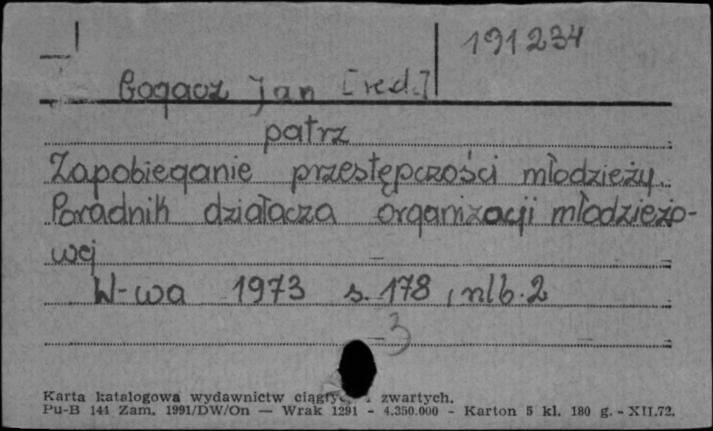 191234
Bogacz Jan [red.]
patrz
Zapobieganie przestępczości młodzieży.
Poradnik działacza organizacji młodzieżo-
wej
W-wa 1973 s. 178, nlb. 2
3
Karta katalogowa wydawnictw zwartych.
Pu-B 141 Zam. 1991/DW/On — Wrak 1291 - 4.350.000 - Karton 5 kl. 180 g. - XII.72.